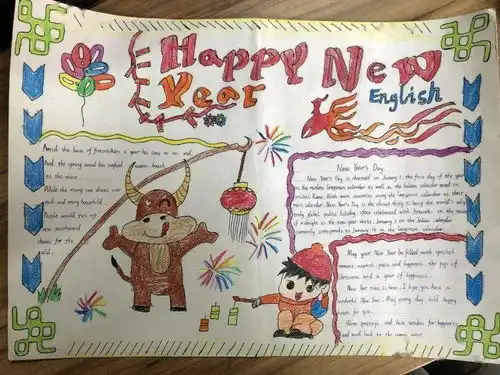 Happy New
Year
English
Amid the boom of firecrackers a year has come to an end,
And the spring wind has wafted warm breath
to the wine.
While the rising sun shines over
each and every household,
People would put up
new peachwood
charm for the
old.
New Year's Day
New Year's Day is observed on January 1, the first day of the year
on the modern Gregorian calendar as well as the Julian calendar used in
ancient Rome. With most countries using the Gregorian calendar as their
main calendar, New Year's Day is the closest thing to being the world's only
truly global public holiday, often celebrated with fireworks at the stroke
of midnight as the new year starts. January 1 on the Julian calendar
currently corresponds to January 14 on the Gregorian calendar.
May your New Year be filled with special
moment, warmth, peace and happiness, the joy of
Christmas and a year of happiness.
New Year time is here. I hope you have a
wonderful New Year. May every day hold happy
hours for you.
Warm greetings and best wishes for happiness
and good luck in the coming year.